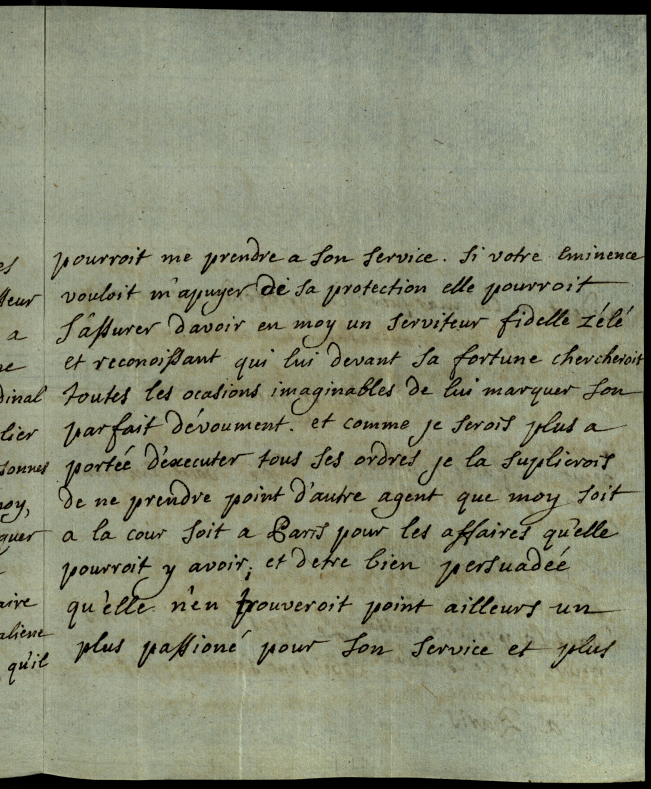 es
sseur
a
ne
dinal
lier
sonnes
moy,
quer
aire
aliene
qu'il
pourroit me prendre a son service. si votre Eminence
vouloit m'apuyer de sa protection elle pourroit
s'assurer d'avoir en moy un serviteur fidelle zélé
et reconoissant qui lui devant sa fortune chercheroit
toutes les ocasions imaginables de lui marquer son
parfait dévoument. et comme je serois plus a
portée d'executer tous ses ordres je la suplierois
de ne prendre point d'autre agent que moy soit
a la cour soit a Paris pour les affaires qu'elle
pourroit y avoir, et detre bien persuadeé
qu'elle n'en trouveroit point ailleurs un
plus passioné pour son service et plus